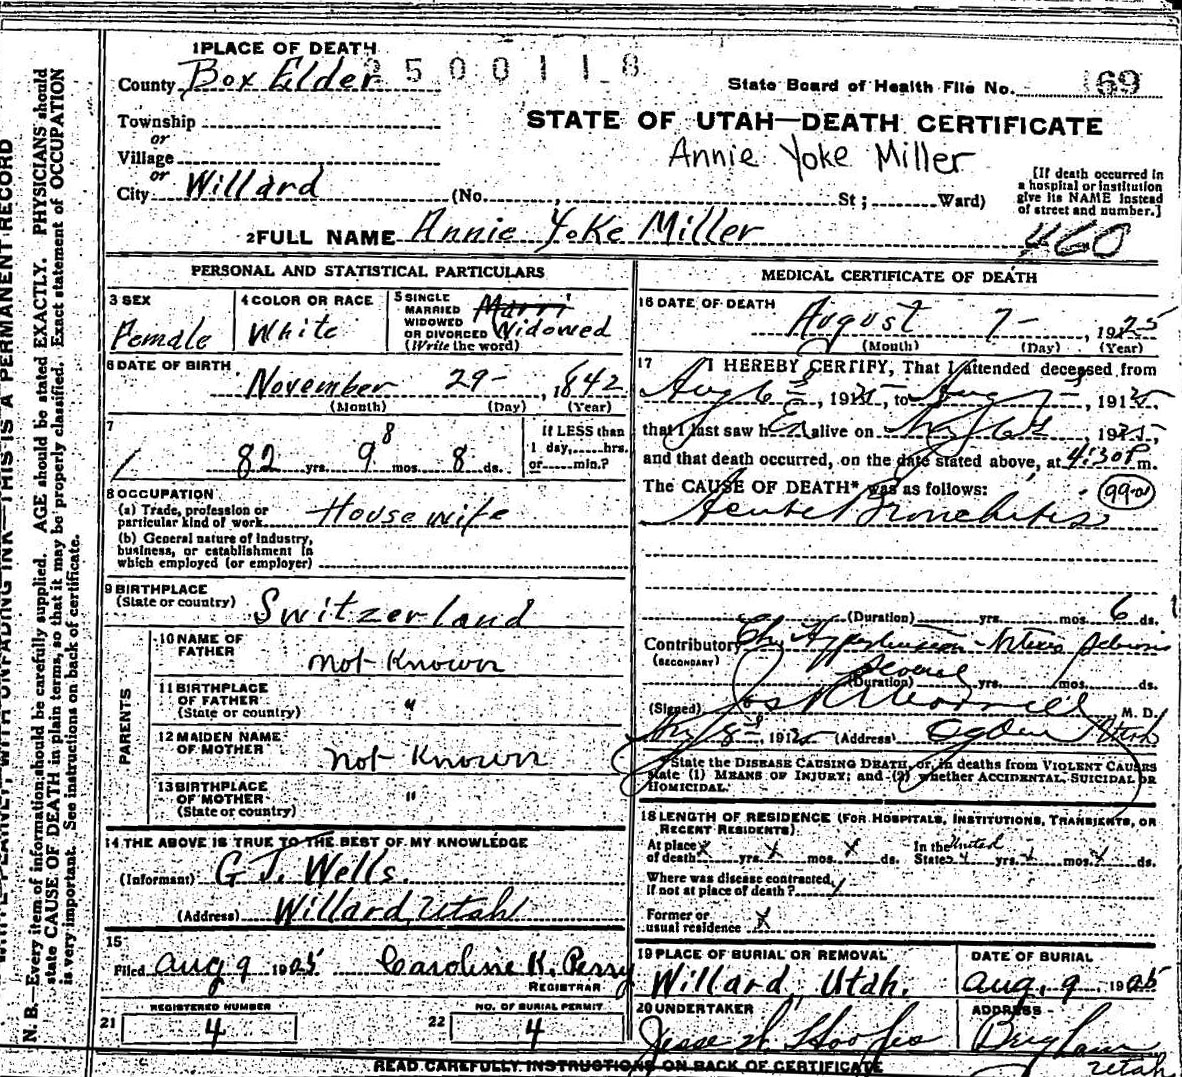 1 PLACE OF DEATH
County Box Elder 2500118
State Board of Health File No. 69
Township
or
Village
or
City Willard (No. , St ; Ward)
STATE OF UTAH—DEATH CERTIFICATE
Annie Yoke Miller
[If death occurred in
a hospital or institution
give its NAME instead
of street and number.]
2 FULL NAME Annie Yoke Miller
460
PERSONAL AND STATISTICAL PARTICULARS
3 SEX
Female
4 COLOR OR RACE
White
5 SINGLE
MARRIED
WIDOWED
OR DIVORCED Widowed
(Write the word)
6 DATE OF BIRTH
November 29- , 1842
(Month) (Day) (Year)
7
8
82 yrs. 9 mos. 8 ds.
If LESS than
1 day, hrs.
or min.?
8 OCCUPATION
(a) Trade, profession or
particular kind of work Housewife
(b) General nature of industry,
business, or establishment in
which employed (or employer)
9 BIRTHPLACE
(State or country) Switzerland
PARENTS
10 NAME OF
FATHER not Known
11 BIRTHPLACE
OF FATHER
(State or country) "
12 MAIDEN NAME
OF MOTHER not Known
13 BIRTHPLACE
OF MOTHER "
(State or country)
14 THE ABOVE IS TRUE TO THE BEST OF MY KNOWLEDGE
(Informant) G J. Wells.
(Address) Willard, Utah
15
Filed Aug 9 1925 Caroline K. Perry
REGISTRAR
REGISTERED NUMBER
21 4
NO. OF BURIAL PERMIT
22 4
MEDICAL CERTIFICATE OF DEATH
16 DATE OF DEATH
August 7- , 1925
(Month) (Day) (Year)
17 I HEREBY CERTIFY, That I attended deceased from
Aug 6 , 1925, to Aug 7 , 1925,
that I last saw her alive on Aug 6 , 1925,
and that death occurred, on the date stated above, at 4:30 P m.
The CAUSE OF DEATH* was as follows:
99-a
Acute Bronchitis
(Duration) yrs. mos. 6 ds.
Contributory
(SECONDARY)
several
(Duration) yrs. mos. ds.
(Signed) M. D.
Aug 8 , 1925 (Address) Ogden Utah
State the DISEASE CAUSING DEATH, or, in deaths from VIOLENT CAUSES
state (1) MEANS OF INJURY; and (2) whether ACCIDENTAL, SUICIDAL OR
HOMICIDAL.
18 LENGTH OF RESIDENCE (FOR HOSPITALS, INSTITUTIONS, TRANSIENTS, OR
RECENT RESIDENTS)
At place
of death x yrs. x mos. x ds.
In the United
States x yrs. x mos. x ds.
Where was disease contracted,
if not at place of death?
Former or
usual residence x
19 PLACE OF BURIAL OR REMOVAL
Willard, Utah.
DATE OF BURIAL
Aug. 9 1925
20 UNDERTAKER
Jesse
ADDRESS
Brigham
Utah
READ CAREFULLY INSTRUCTIONS ON BACK OF CERTIFICATE
WITH UNFADING INK—THIS IS A PERMANENT RECORD
N. B.—Every item of information should be carefully supplied. AGE should be stated EXACTLY. PHYSICIANS should
state CAUSE OF DEATH in plain terms, so that it may be properly classified. Exact statement of OCCUPATION
is very important. See instructions on back of certificate.